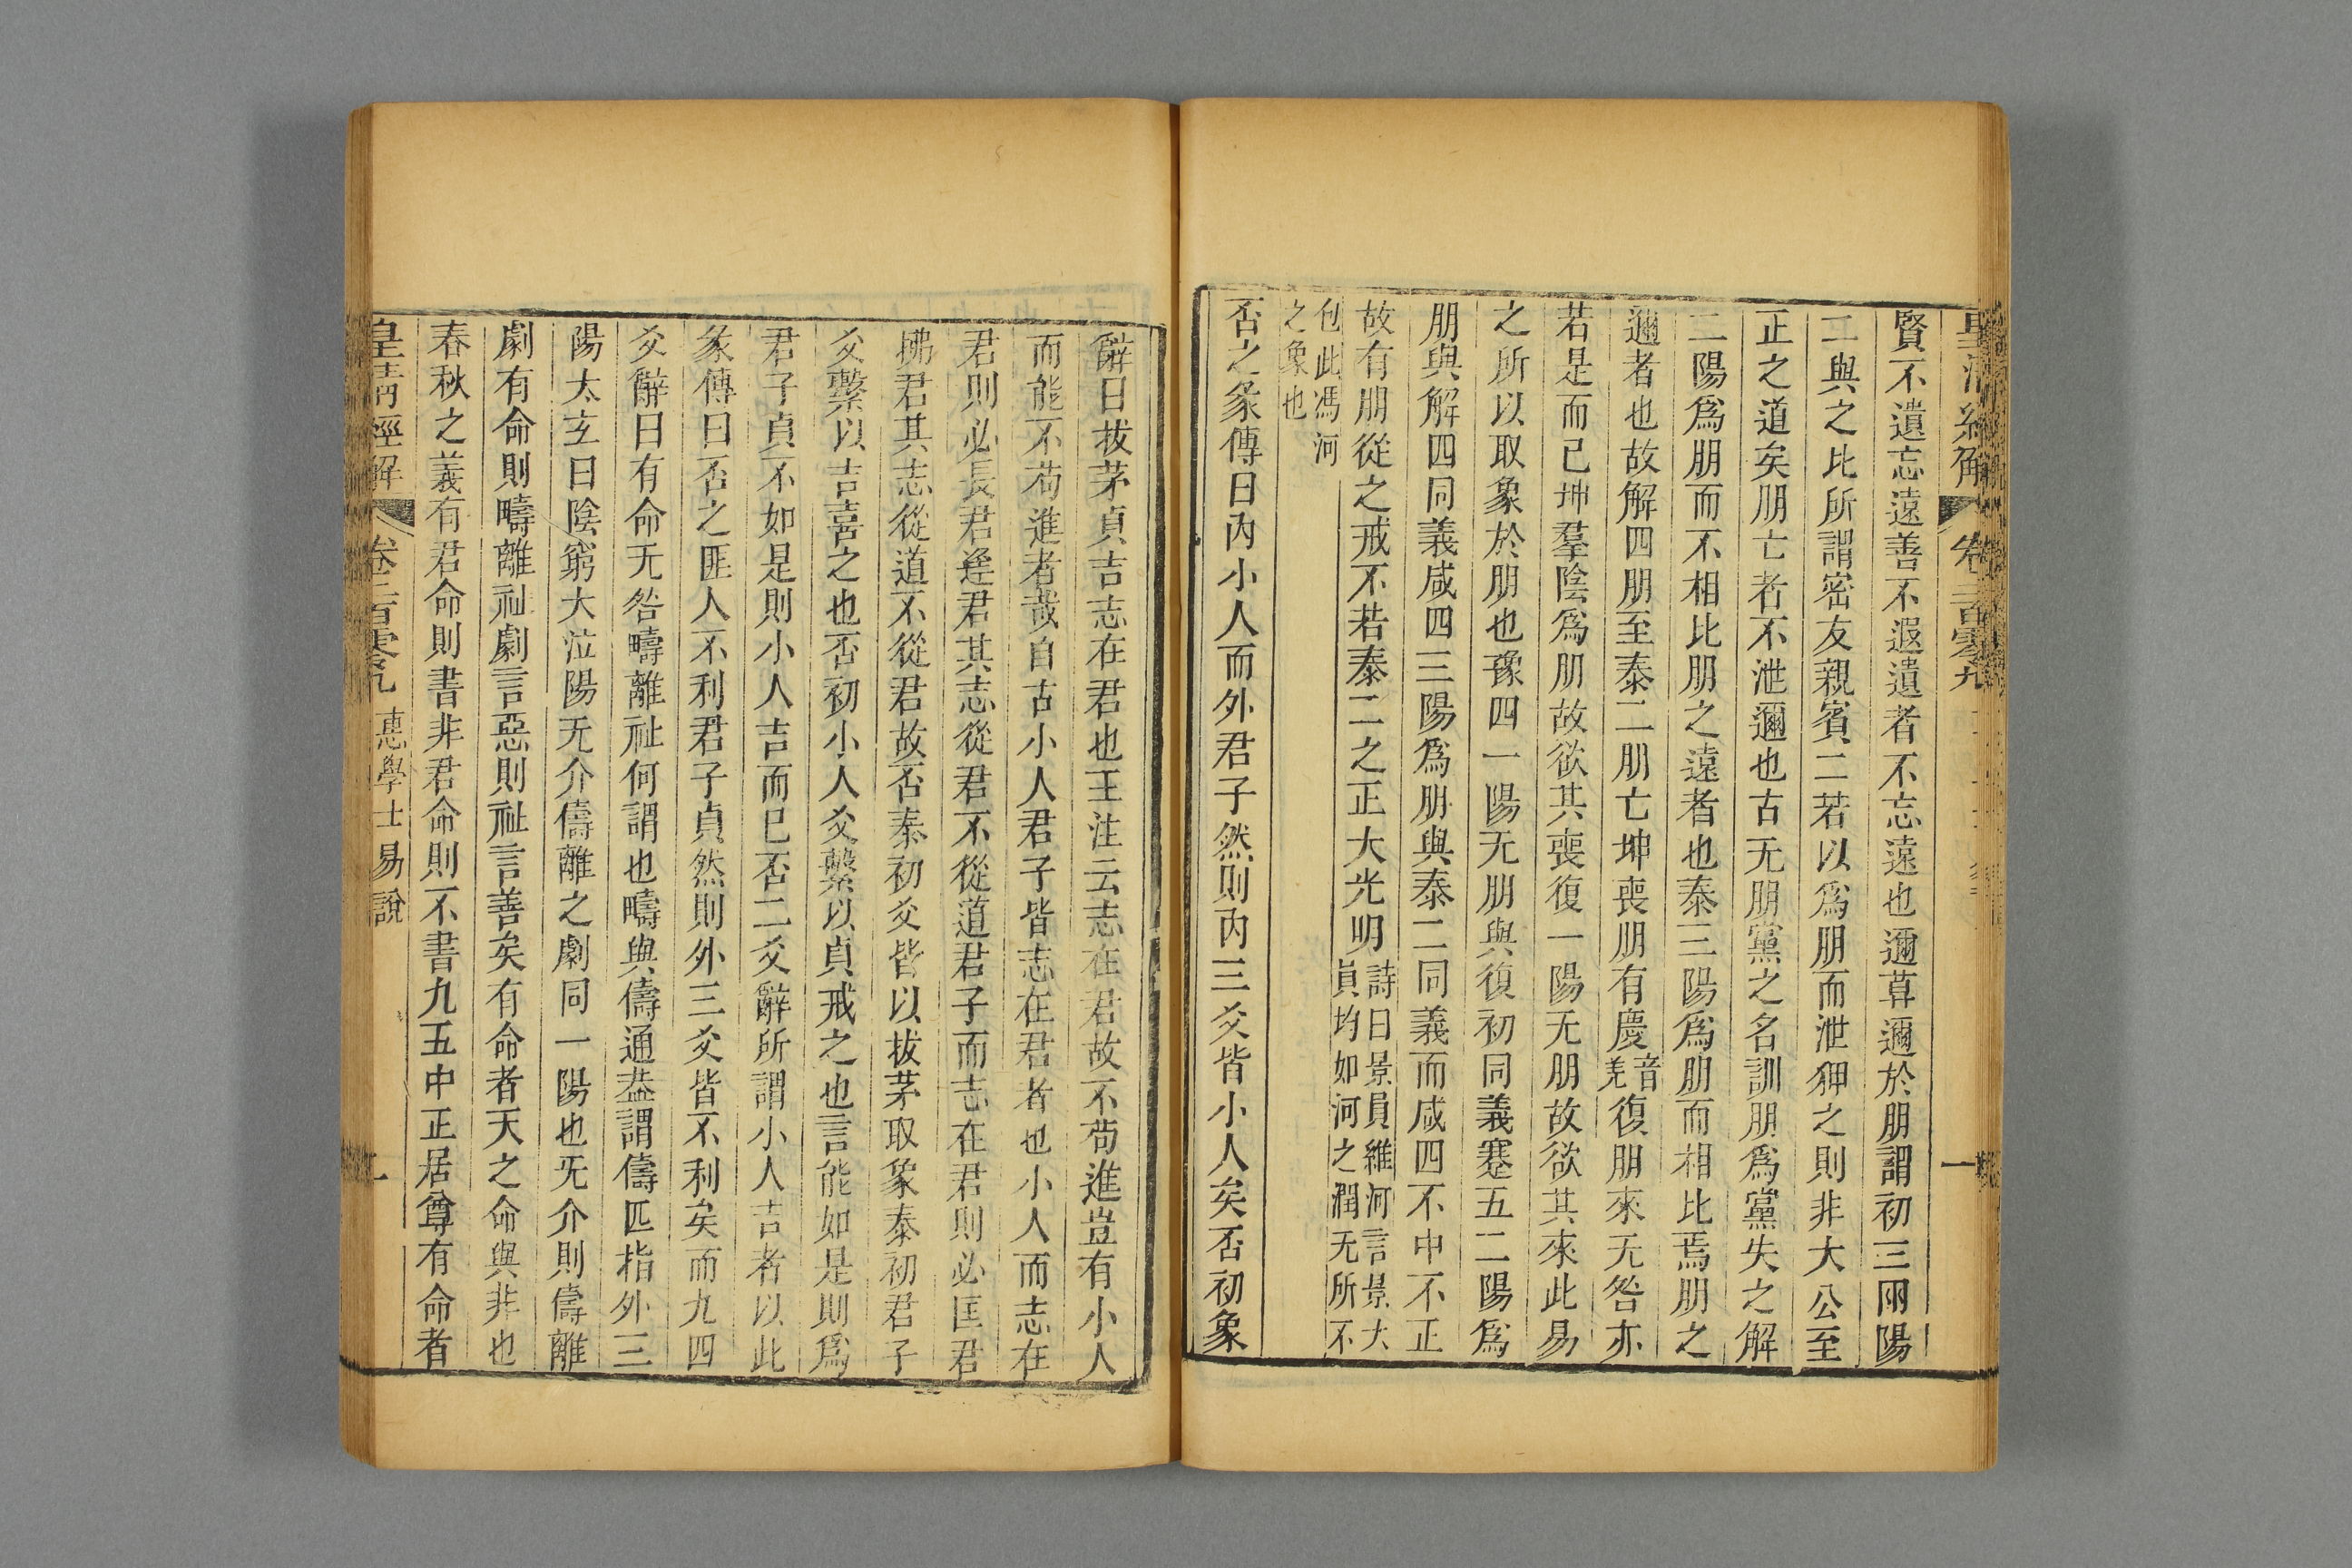 賢不遺忘遠善不遐遺者不忘遠也邇尊邇於朋謂初三兩陽
二與之比所謂密友親賓二若以爲朋而泄狎之則非大公至
正之道矣朋亡者不泄邇也古无朋黨之名訓朋爲黨失之解
二陽爲朋而不相比朋之遠者也泰三陽爲朋而相比焉朋之
邇者也故解四朋至泰二朋亡坤喪朋有慶音羌復朋來无咎亦
若是而已坤羣陰爲朋故欲其喪復一陽无朋故欲其來此易
之所以取象於朋也豫四一陽无朋與復初同義蹇五二陽爲
朋與解四同義咸四三陽爲朋與泰二同義而咸四不中不正
故有朋從之戒不若泰二之正大光明詩曰景員維河言景大
員均如河之潤无所不
包此馮河
之象也
否之彖傳曰內小人而外君子然則內三爻皆小人矣否初象
辭曰拔茅貞吉志在君也王注云志在君故不苟進豈有小人
而能不苟進者哉自古小人君子皆志在君者也小人而志在
君則必長君逢君其志從君不從道君子而志在君則必匡君
拂君其志從道不從君故否泰初爻皆以拔茅取象泰初君子
爻繫以吉喜之也否初小人爻繫以貞戒之也言能如是則爲
君子貞不如是則小人吉而已否二爻辭所謂小人吉者以此
彖傳曰否之匪人不利君子貞然則外三爻皆不利矣而九四
爻辭曰有命无咎疇離祉何謂也疇與儔通葢謂儔匹指外三
陽太玄曰陰窮大泣陽无介儔離之劇同一陽也旡介則儔離
劇有命則疇離祉劇言惡則祉言善矣有命者天之命與非也
春秋之義有君命則書非君命則不書九五中正居尊有命者
皇淸經解 卷二百零九 惠學士易說 二